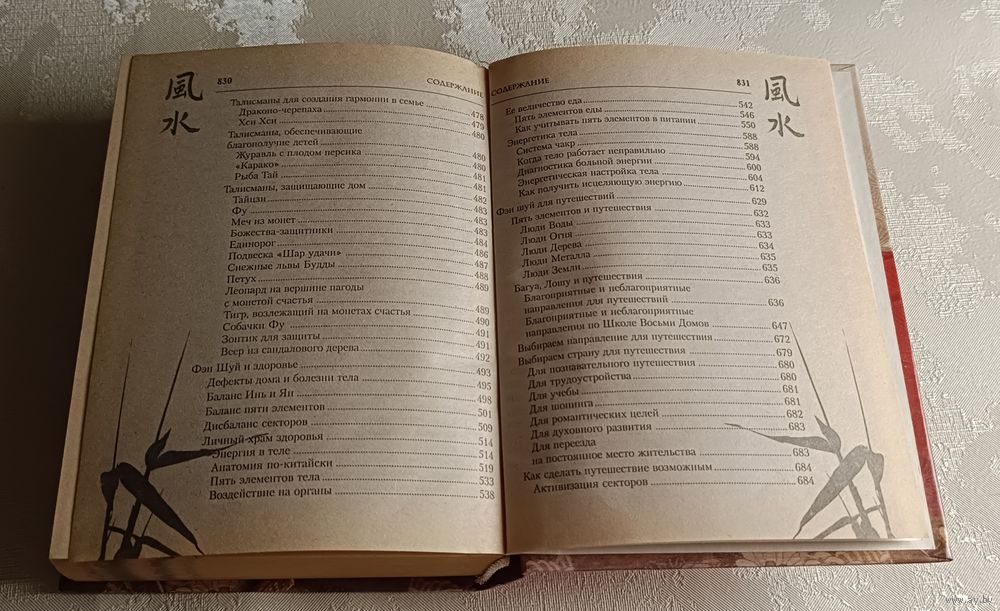 風水
830 СОДЕРЖАНИЕ
Талисманы для создания гармонии в семье 478
Драконо-черепаха 479
Хси Хси 480
Талисманы, обеспечивающие
благополучие детей 480
Журавль с плодом персика 480
«Карако» 481
Рыба Тай 481
Талисманы, защищающие дом 482
Тайцзи 483
Фу 483
Меч из монет 483
Божества-защитники 484
Единорог 486
Подвеска «Шар удачи» 487
Снежные львы Будды 488
Петух 489
Леопард на вершине пагоды
с монетой счастья 489
Тигр, возлежащий на монетах счастья 490
Собачки Фу 491
Зонтик для защиты 491
Веер из сандалового дерева 492
Фэн Шуй и здоровье 493
Дефекты дома и болезни тела 495
Баланс Инь и Ян 498
Баланс пяти элементов 501
Дисбаланс секторов 509
Личный храм здоровья 514
Энергия в теле 514
Анатомия по-китайски 519
Пять элементов тела 533
Воздействие на органы 538
СОДЕРЖАНИЕ 831
風水
Ее величество еда 542
Пять элементов еды 546
Как учитывать пять элементов в питании 550
Энергетика тела 588
Система чакр 588
Когда тело работает неправильно 594
Диагностика больной энергии 600
Энергетическая настройка тела 604
Как получить исцеляющую энергию 612
Фэн шуй для путешествий 629
Пять элементов и путешествия 632
Люди Воды 633
Люди Огня 633
Люди Дерева 634
Люди Металла 635
Люди Земли 635
Багуа, Лошу и путешествия 636
Благоприятные и неблагоприятные
направления для путешествий 636
Благоприятные и неблагоприятные
направления по Школе Восьми Домов 647
Выбираем направление для путешествия 672
Выбираем страну для путешествия 679
Для познавательного путешествия 680
Для трудоустройства 680
Для учебы 681
Для шопинга 681
Для романтических целей 682
Для духовного развития 683
Для переезда
на постоянное место жительства 683
Как сделать путешествие возможным 684
Активизация секторов 684
www.ay.by